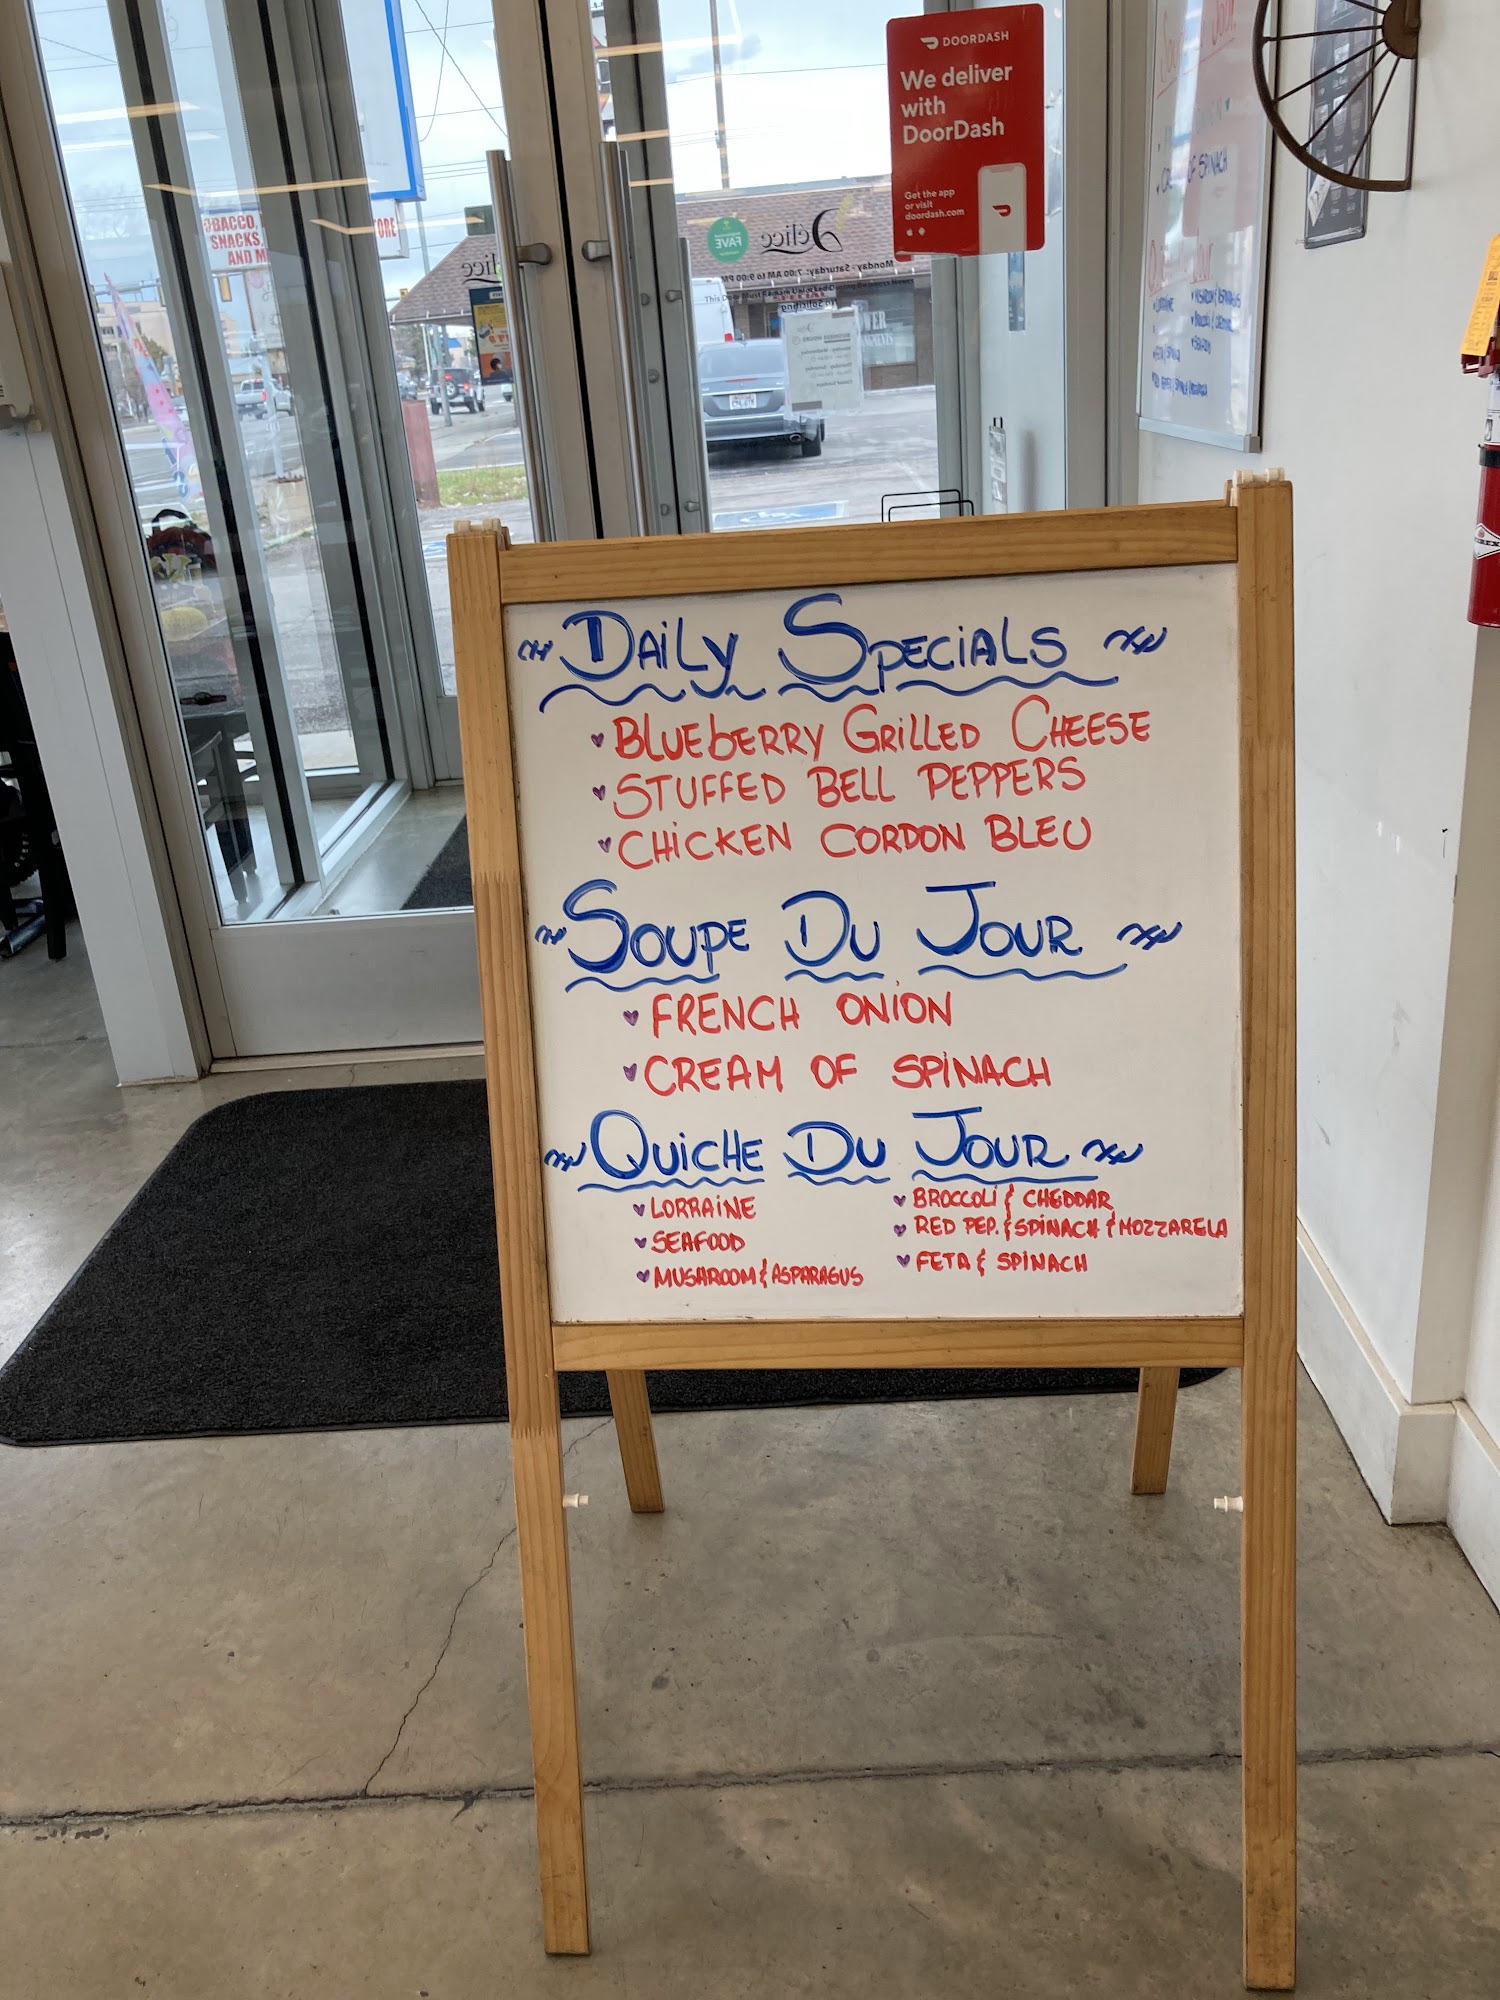 DOORDASH
We deliver
with
DoorDash
Get the app
or visit
doordash.com
OBACCO,
SNACKS,
AND M
ORE
Delice
FAVE
Monday - Saturday: 7:00 AM to 9:00 PM
No Soliciting
OF SPINACH
DAILY SPECIALS
BLUEBERRY GRILLED CHEESE
STUFFED BELL PEPPERS
CHICKEN CORDON BLEU
SOUPE DU JOUR
FRENCH ONION
CREAM OF SPINACH
QUICHE DU JOUR
LORRAINE
SEAFOOD
MUSHROOM & ASPARAGUS
BROCCOLI & CHEDDAR
RED PEP. & SPINACH & MOZZARELA
FETA & SPINACH